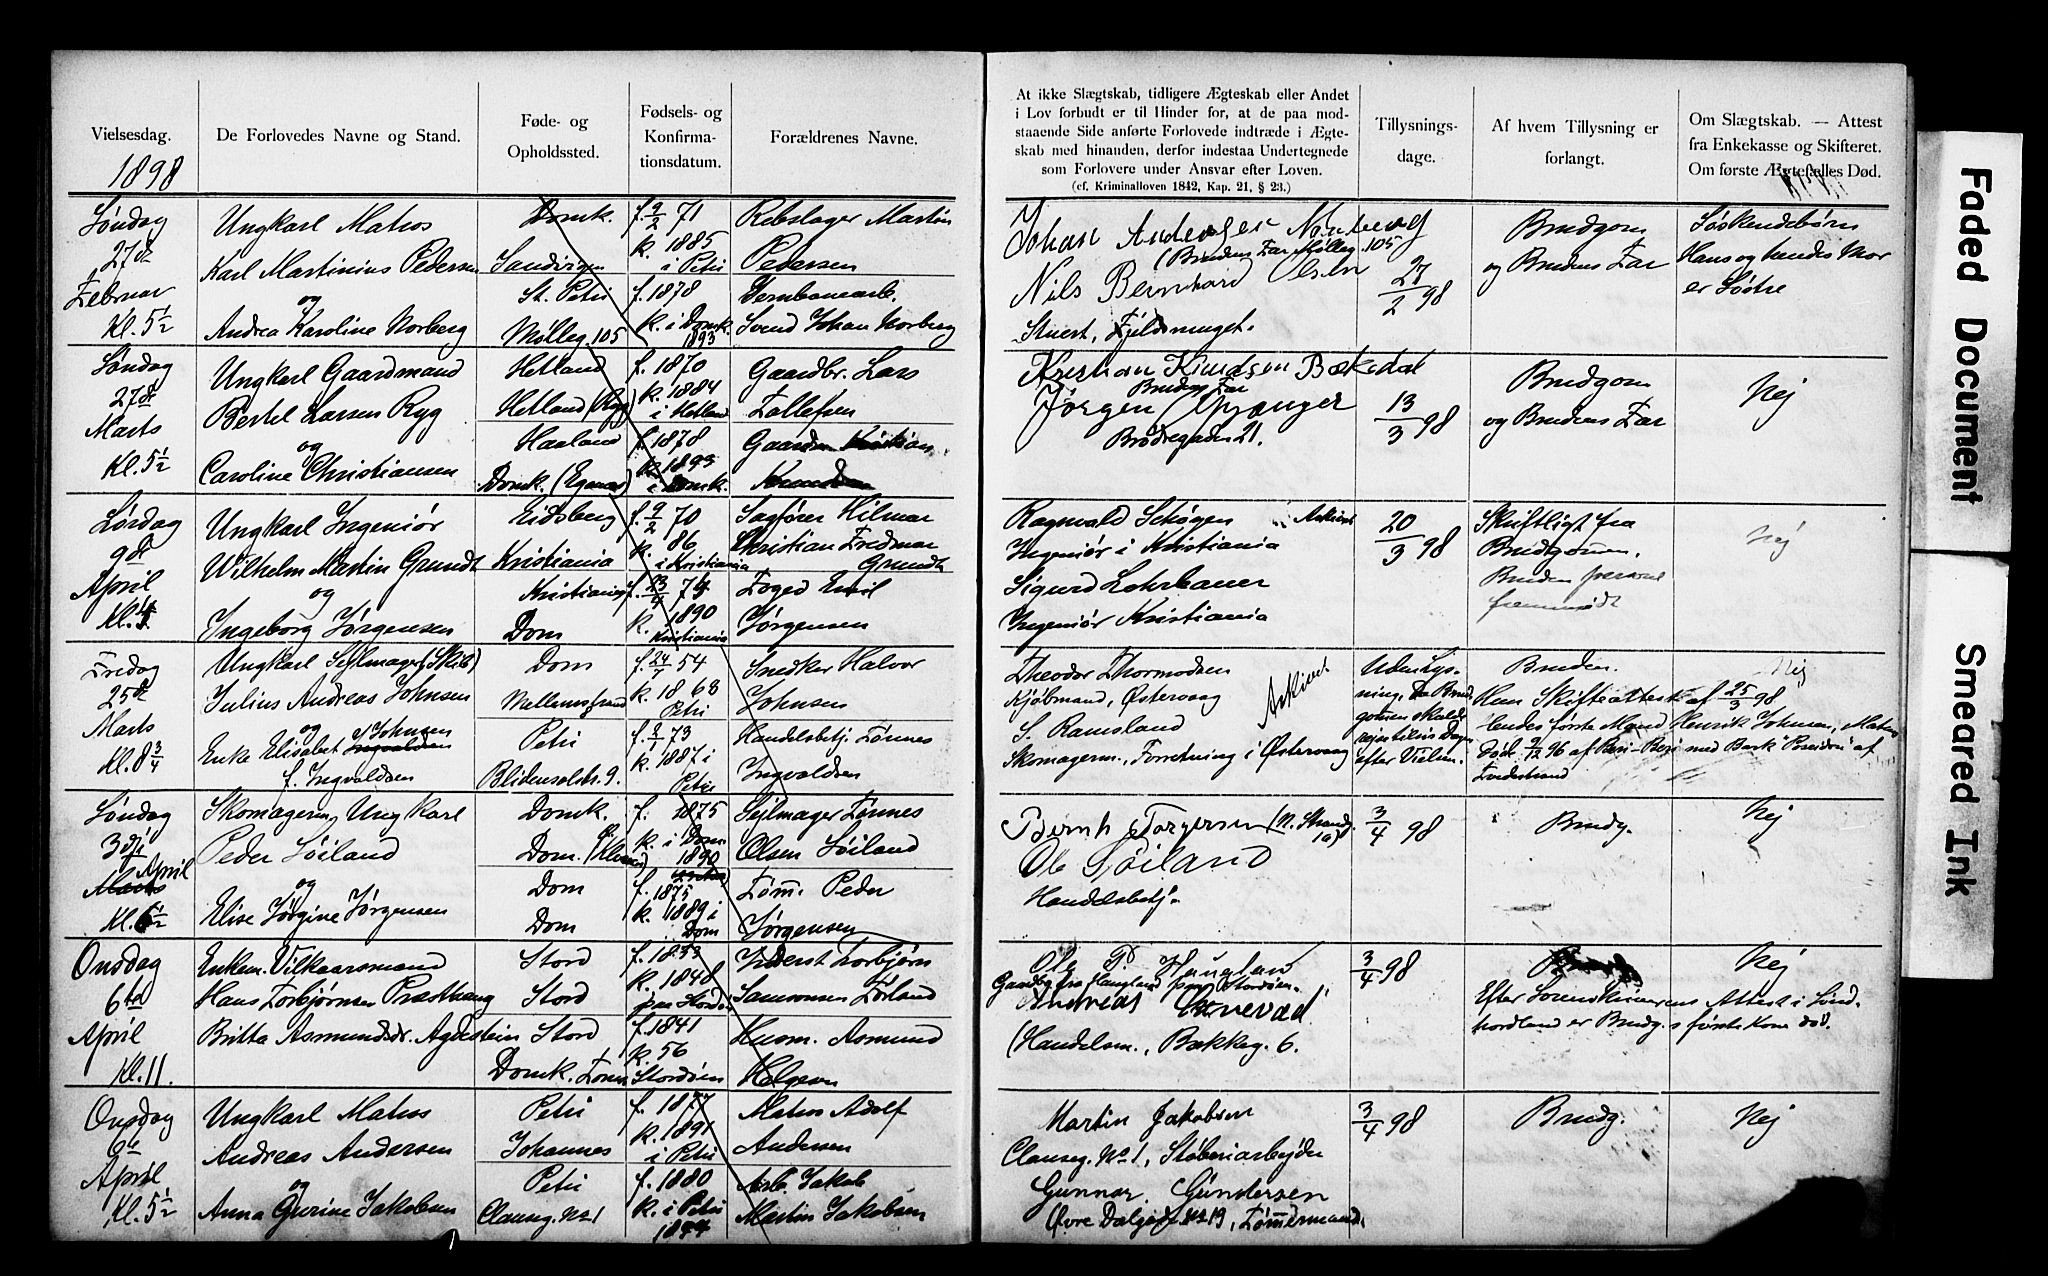 Vielsesdag.
De Forlovedes Navne og Stand.
Føde- og
Opholdssted.
Fødsels- og
Konfirma-
tionsdatum.
Forældrenes Navne.
1898
Søndag
27de
Februar
Kl. 5½
Ungkarl Matros
Karl Martinius Pedersen
og
Andrea Karoline Norberg
Domk.
Sandvigen
St. Petri
Mølleg. 105
f. 9/2 71
k. 1885
i Petri
f. 1878
k. i Domk.
1893
Rebslager Martin
Pedersen
Jernbanearb.
Svend Johan Norberg
Søndag
27de
Marts
Kl. 5½
Ungkarl Gaardmand
Bertel Larsen Ryg
og
Caroline Christiansen
Hetland
Hetland (Ryg)
Haaland
Domk. (Eganes)
f. 1870
k. 1884
i Hetland
f. 1878
k. 1893
i Domk.
Gaardbr. Lars
Tollefsen
Lørdag
9de
April
Kl. 4
Ungkarl Ingeniør
Wilhelm Martin Grundt
og
Ingeborg Jørgensen
Eidsberg
Kristiania
Kristiania
Dom
f. 9/2 70
k. 86
i Kristiania
k. 1890
Kristiania
Sagfører Hilmar
Christian Fredmar
Grundt
Foged Emil
Jørgensen
Fredag
25de
Marts
Kl. 8¾
Ungkarl Sejlmager (Skib)
Julius Andreas Johnsen
og
Enke Elisabet Johnsen
f. Ingvaldsen
Dom
Mellemstrand
Petri
Blidensolstr. 9.
f. 24/7 54
k. 1868
Petri
f. 2/1 73
k. 1887 i
Petri
Snedker Halvor
Johnsen
Handelsbetj. Tønnes
Ingvaldsen
Søndag
3die
April
Marts
Kl. 6½
Skomagersv. Ungkarl
Peder Søiland
og
Elise Jørgine Jørgensen
Domk.
Dom.
Dom
Dom
f. 1875
k. i Dom
1890
f. 1875
k. 1889 i
Dom
Sejlmager Tønnes
Olsen Søiland
Tømm. Peder
Jørgensen
Onsdag
6te
April
Kl. 11.
Enkem. Vilkaarsmand
Hans Torbjørnsen Præsthaug
Britta Asmundsdr. Agdestein
Stord
Stord
Stord
Domk.
f. 1833
k. 1848
paa Stordøen
f. 1841
k. 56
Stordøen
Inderst Torbjørn
Samsonsen Førland
Husm. Asmund
Helgesen
Onsdag
6te
April
Kl. 5½
Ungkarl Matros
Andreas Andersen
og
Anna Gurine Jakobsen
Petri
Johannes
Petri
Clauseg. No 1
f. 1877
k. 1891
i Petri
f. 1880
k. i Petri
1894
Matros Adolf
Andersen
Arb. Jakob
Martin Jakobsen
At ikke Slægtskab, tidligere Ægteskab eller Andet
i Lov forbudt er til Hinder for, at de paa mod-
staaende Side anførte Forlovede indtræde i Ægte-
skab med hinanden, derfor indestaa Undertegnede
som Forlovere under Ansvar efter Loven.
(cf. Kriminalloven 1842, Kap. 21, § 23.)
Tillysnings-
dage.
Af hvem Tillysning er
forlangt.
Om Slægtskab. — Attest
fra Enkekasse og Skifteret.
Om første Ægtefælles Død.
Johan Norberg
(Brudens Far Mølleg. 105
Nils Bernhard Olsen
Stuert, Fjeldsmuget.
27/2 98
Brudgom
og Brudens Far
Søskendebørn
Hans og hendes Mor
er Søstre
Kristian Knudsen Bækedal
Brudens Far
Jørgen Opsanger
Brødregaden 21.
13/3 98
Brudgom
og Brudens Far
Nej
Ragnvald Schøyen
Ingeniør i Kristiania
Sigurd Lohrbauer
Ingeniør Kristiania
20/3 98
Skriftligt fra
Brudgommen.
Bruden personl.
fremmødt
Nej
Theodor Thormodsen
Kjøbmand, Østervaag
S. Ramsland
Skomagerm., Forretning i Østervaag
Arkivet
Uden Lys-
ning, Da Brud-
gommen skal
efter Vielsen.
Bruden.
Hans Skifteattest af 25/3 98
Hendes første Mand Henrik Johnsen, Matros
Død 7/12 96 af Beri-Beri med Bark "Poseidon" af
Nej
Bernh Torgersen (N. Strandg.
10)
Ole Søiland
Handelsbetj.
3/4 98
Brudg.
Nej
Ole P. Haugland
Gaardbr. fra Haugland paa Stordøen.
Andreas Tornevad
(Handelsm., Bækkeg. 6.
3/4 98
Efter Sorenskriverens Attest i Sønd-
hordland er Brudg.s første Kone død.
Nej
Martin Jakobsen
Clauseg. No 1, Støberiarbejder
Gunnar Gundersen
Øvre Dalgade No 19, Tømmermand.
3/4 98
Brudg.
Nej
Faded Document
Smeared Ink